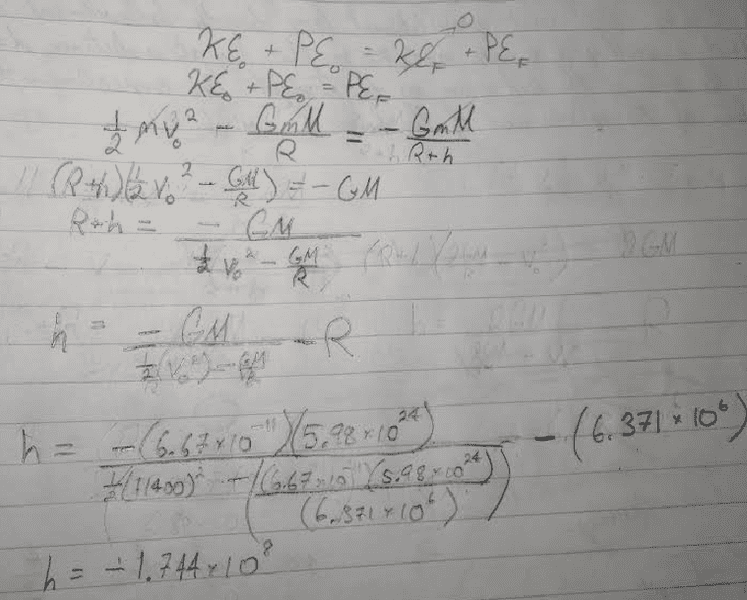 KE₀ + PE₀ = KE_F→0 + PE_F
KE₀ + PE₀ = PE_F
1/2 mv₀² - GmM/R = - GmM/(R+h)
(R+h)(1/2 v₀² - GM/R) = - GM
R+h = - GM / (1/2 v₀² - GM/R)
h = - GM / (1/2 (v₀²) - GM/R) - R
h = -(6.67×10⁻¹¹)(5.98×10²⁴) / (1/2 (11400)² - ((6.67×10⁻¹¹)(5.98×10²⁴) / (6.371×10⁶))) - (6.371×10⁶)
h = -1.744×10⁸